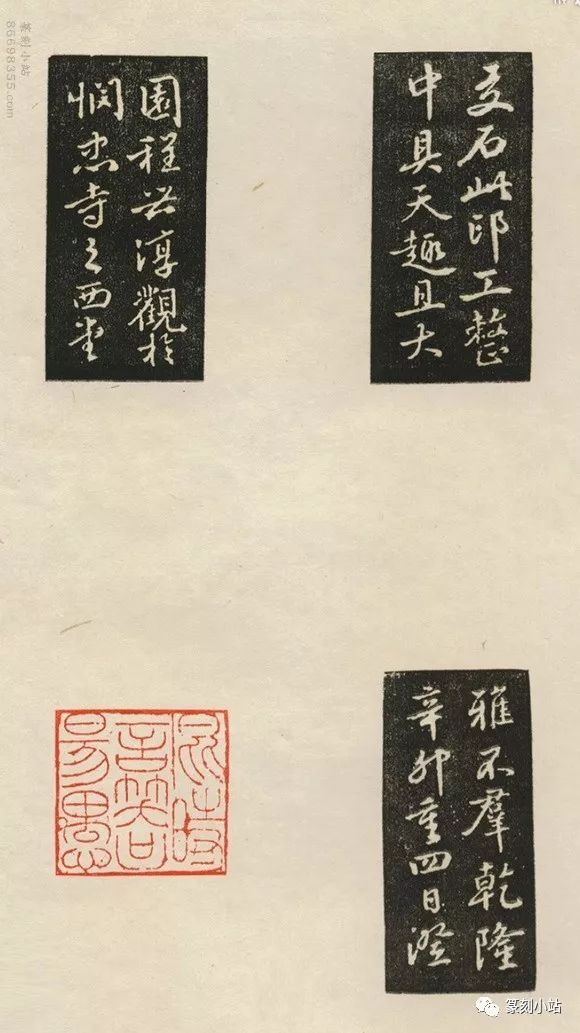 石此印工整
中具天趣且大
雅不羣乾隆
辛卯重四日澄
園程世淳觀於
憫忠寺之西堂
言笑
篆刻小站
86698355.com
篆刻小站